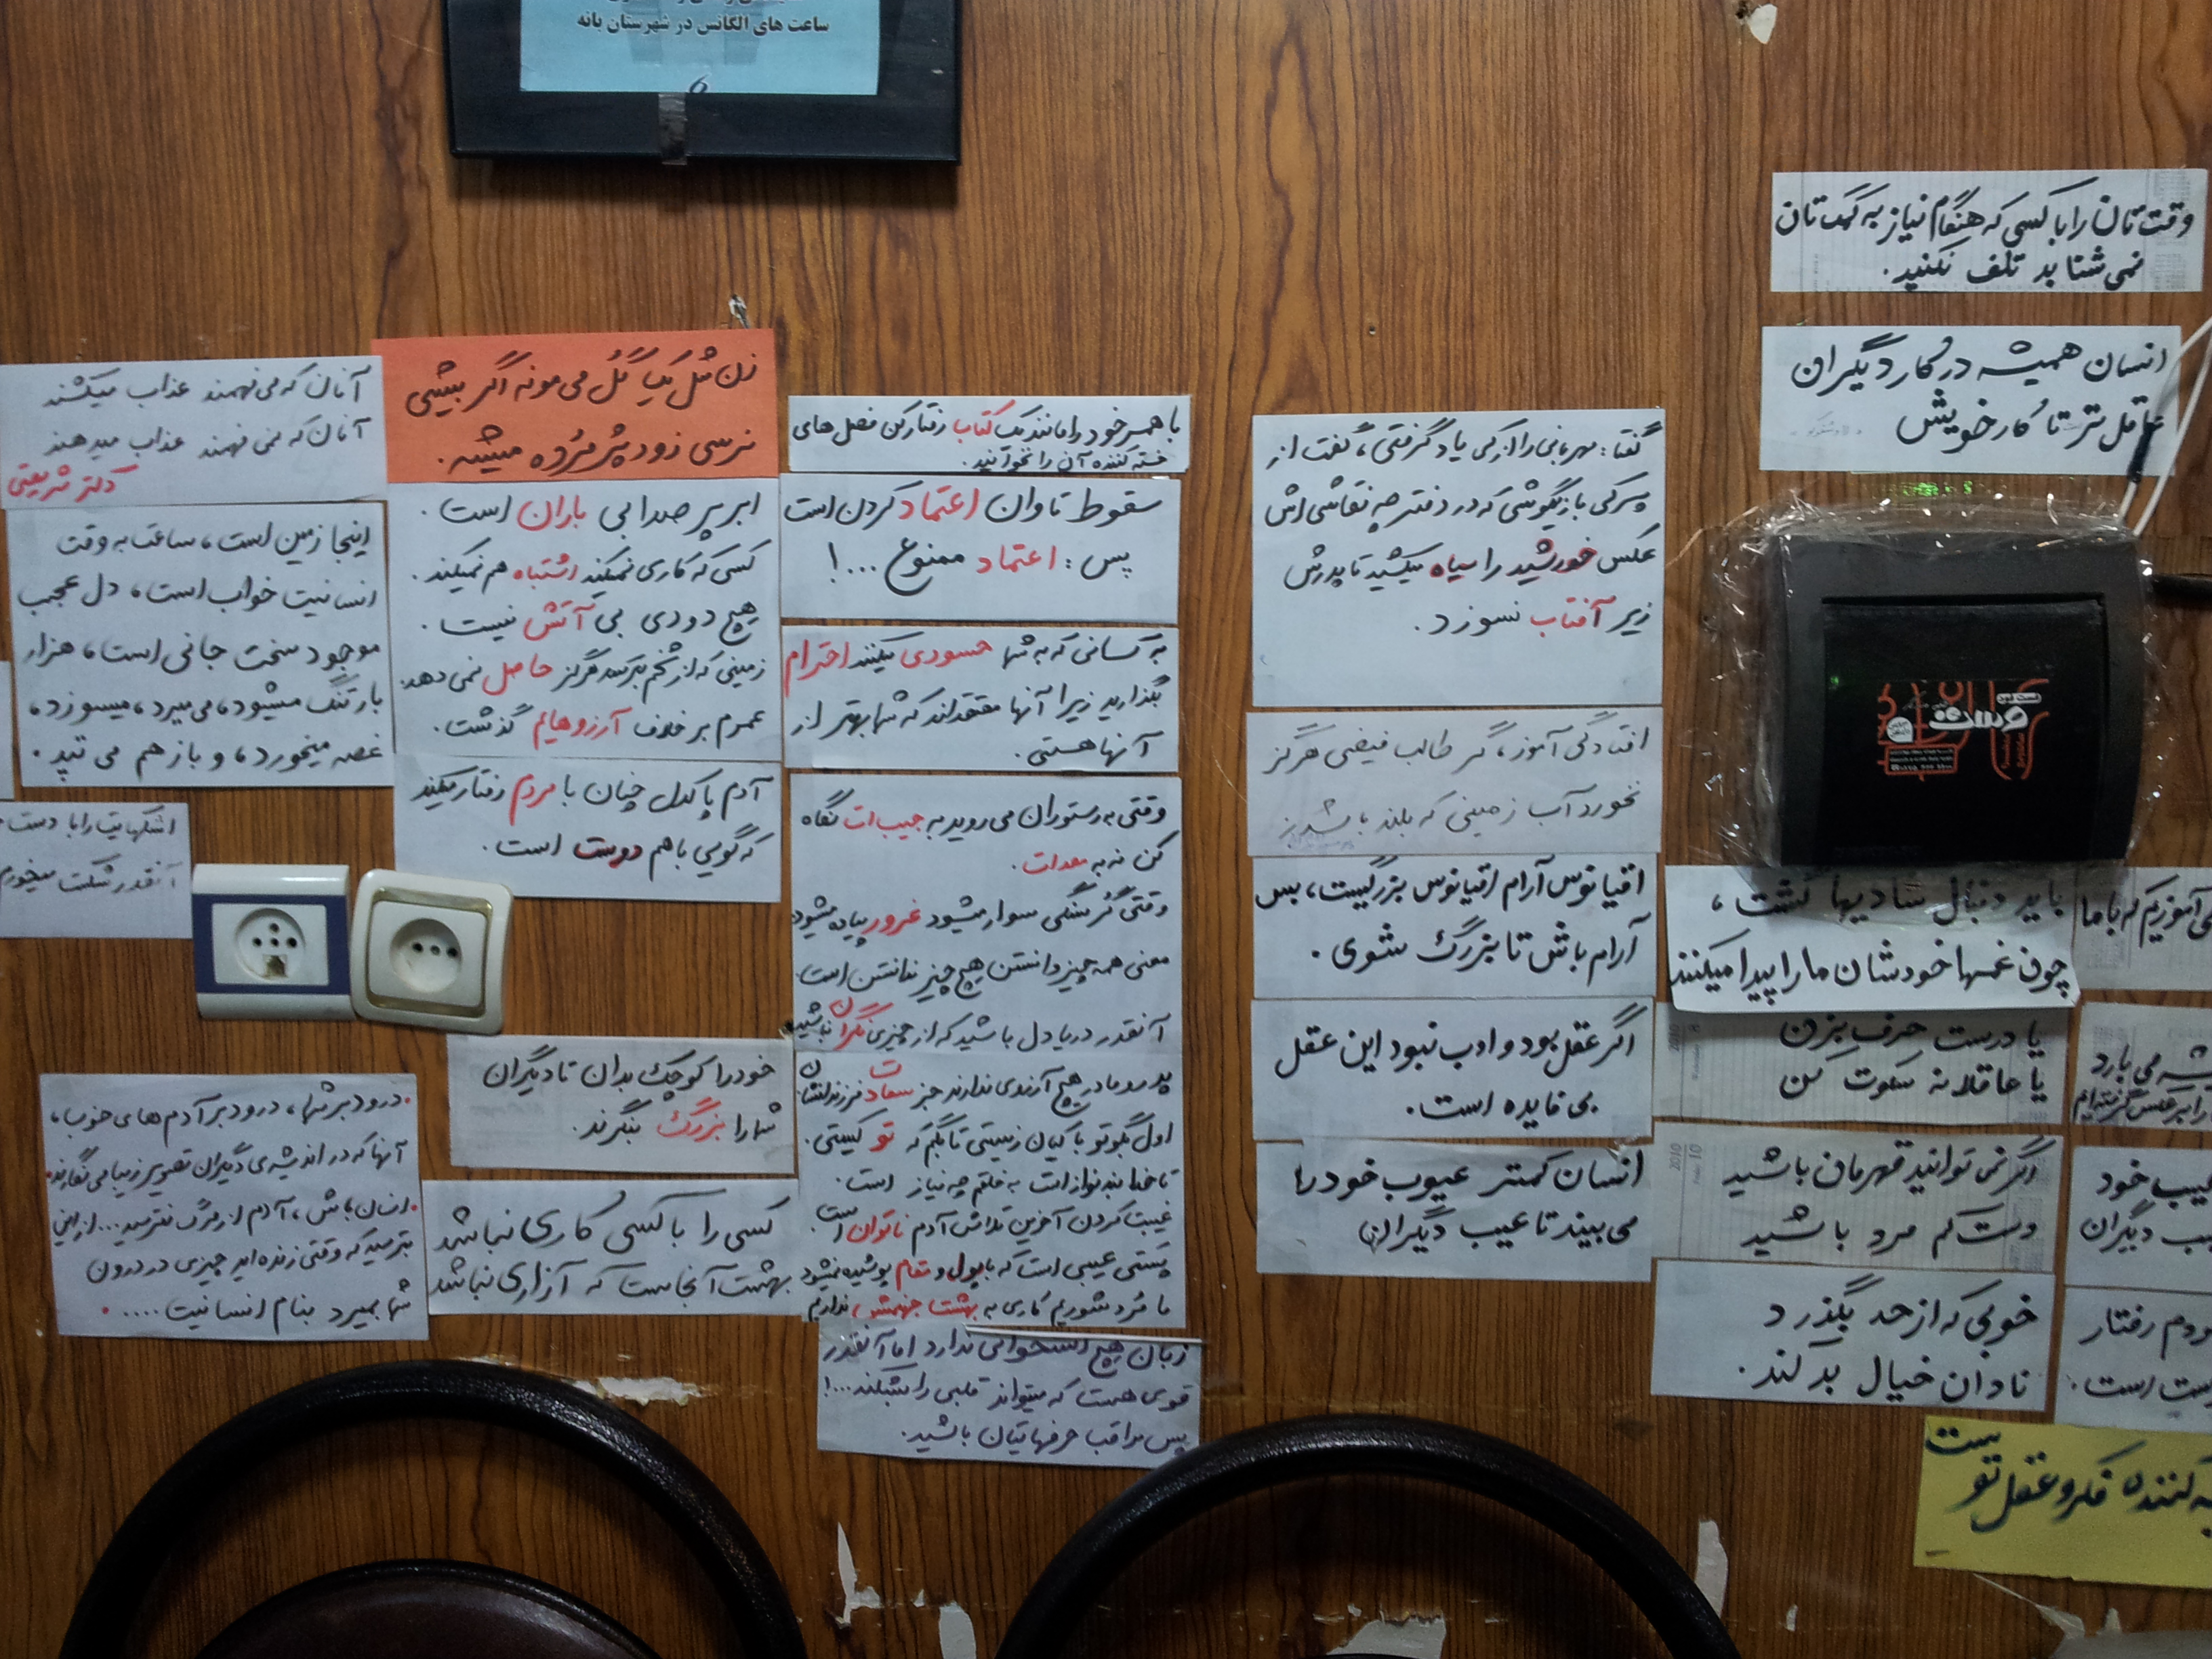 ساعت های الگانس در شهرستان بانه
6
وقت تان را با کسی که هنگام نیاز به کمک تان
نمی شتابد تلف نکنید.
انسان همیشه در کار دیگران
عاقل تر تا کار خویش
باید دنبال شادیها گشت،
چون غمها خودشان ما را پیدا میکنند
یا درست حرف بزن
یا عاقلانه سکوت کن
اگر نمی توانید قهرمان باشید
دست کم مرد باشید
خوبی که از حد بگذرد
نادان خیال بد کند.
می آموزیم که با ما
می بارد
عیب خود
عیب دیگران
مردم رفتار
است.
کننده فکر و عقل تو
ست
گفتا: مهربانی را از کی یاد گرفتی، گفت از
پسرکی بازیگوشی که در دفترچه نقاشی اش
عکس خورشید را سیاه میکشید تا پدرش
زیر آفتاب نسوزد.
افتادگی آموز، گر طالب فیضی هرگز
نخورد آب زمینی که بلند باشد
اقیانوس آرام اقیانوس بزرگیست، پس
آرام باش تا بزرگ شوی.
اگر عقل بود و ادب نبود این عقل
بی فایده است.
انسان کمتر عیوب خود را
می بیند تا عیب دیگران
با همسر خود را مانند یک کتاب رفتار کن فصل های
خسته کننده آن را نخوانید.
سقوط تاوان اعتماد کردن است
پس: اعتماد ممنوع ...!
به کسانی که به شما حسودی میکنند احترام
بگذارید زیرا آنها معتقداند که شما بهتر از
آنها هستی.
وقتی به رستوران می روید به جیب ات نگاه
کن نه به معدات.
وقتی گرسنگی سوار میشود غرور پیاده میشود
معنی همه چیز دانستن هیچ چیز ندانستن است.
آنقدر دریا دل باشید که از چیزی نگران نباشید
پدر و مادر هیچ آرزوی ندارند جز سعادت فرزندانشان
اول بگو تو با کیان زیستی تا بگم که تو کیستی.
تا خدا بنده نواز است به خلقم چه نیاز است.
غیبت کردن آخرین تلاش آدم ناتوان است.
پستی عیبی است که با پول و مقام پوشیده نمیشود
ما مرد شوریم کاری به بهشت جهنمش نداریم
زبان هیچ استخوانی ندارد اما آنقدر
قوی هست که میتواند قلبی را بشکند...!
پس مراقب حرفهایتان باشید.
زن مثل یک گل می مونه اگر بهش
نرسی زود پژمرده میشه.
ابر پر صدا بی باران است.
کسی که کاری نمیکند اشتباه هم نمیکند.
هیچ دودی بی آتش نیست.
زمینی که از شخم بترسد هرگز حاصل نمی دهد.
عمرم بر خلاف آرزوهایم گذشت.
آدم پاکدل چنان با مردم رفتار میکند
که گویی با هم دوست است.
خود را کوچک بدان تا دیگران
شما را بزرگ بنگرند.
کسی را با کسی کاری نباشد
بهشت آنجاست که آزاری نباشد
آنان که می فهمند عذاب میکشند
آنان که نمی فهمند عذاب میدهند
دکتر شریعتی
اینجا زمین است، ساعت به وقت
انسانیت خواب است، دل عجب
موجود سخت جانی است، هزار
بار تنگ میشود، می میرد، میسوزد،
غصه میخورد، و باز هم می تپد.
اشکهایت را با دست
آنقدر شکست میخوری
درود بر شما، درود بر آدم های خوب،
آنها که در اندیشه ی دیگران تصویر زیبا می نگارند
انسان باش، آدم از مرگ نترسید... از این
بترسید که وقتی زنده اید چیزی در درون
شما بمیرد بنام انسانیت....